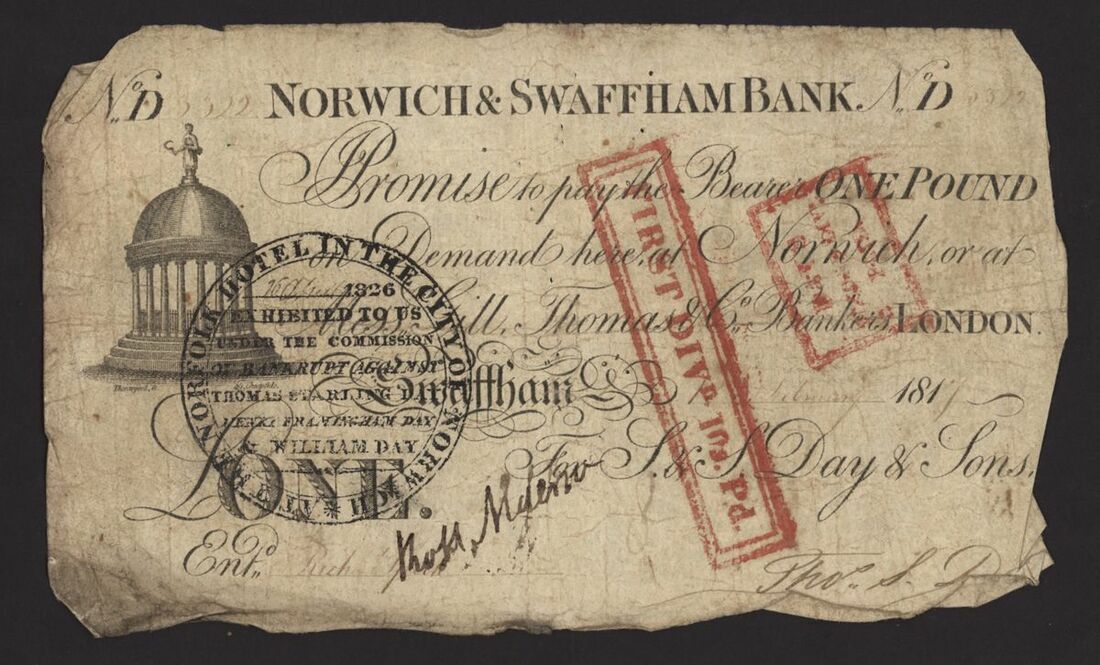 No. D 3322 NORWICH & SWAFFHAM BANK. No. D 3322
I Promise to pay the Bearer ONE POUND
on Demand here, at Norwich, or at
Messrs Gill, Thomas & Co. Bankers, LONDON.
Swaffham 1819
For S. & S. Day & Sons.
£ONE.
Entd.
Thos. S. D
AT THE NORFOLK HOTEL IN THE CITY OF NORWICH
1826
EXHIBITED TO US
UNDER THE COMMISSION
OF BANKRUPT AGAINST
THOMAS STARLING DAY
HENRY FRAMINGHAM DAY
& WILLIAM DAY
FIRST DIVd. 10s. Pd.